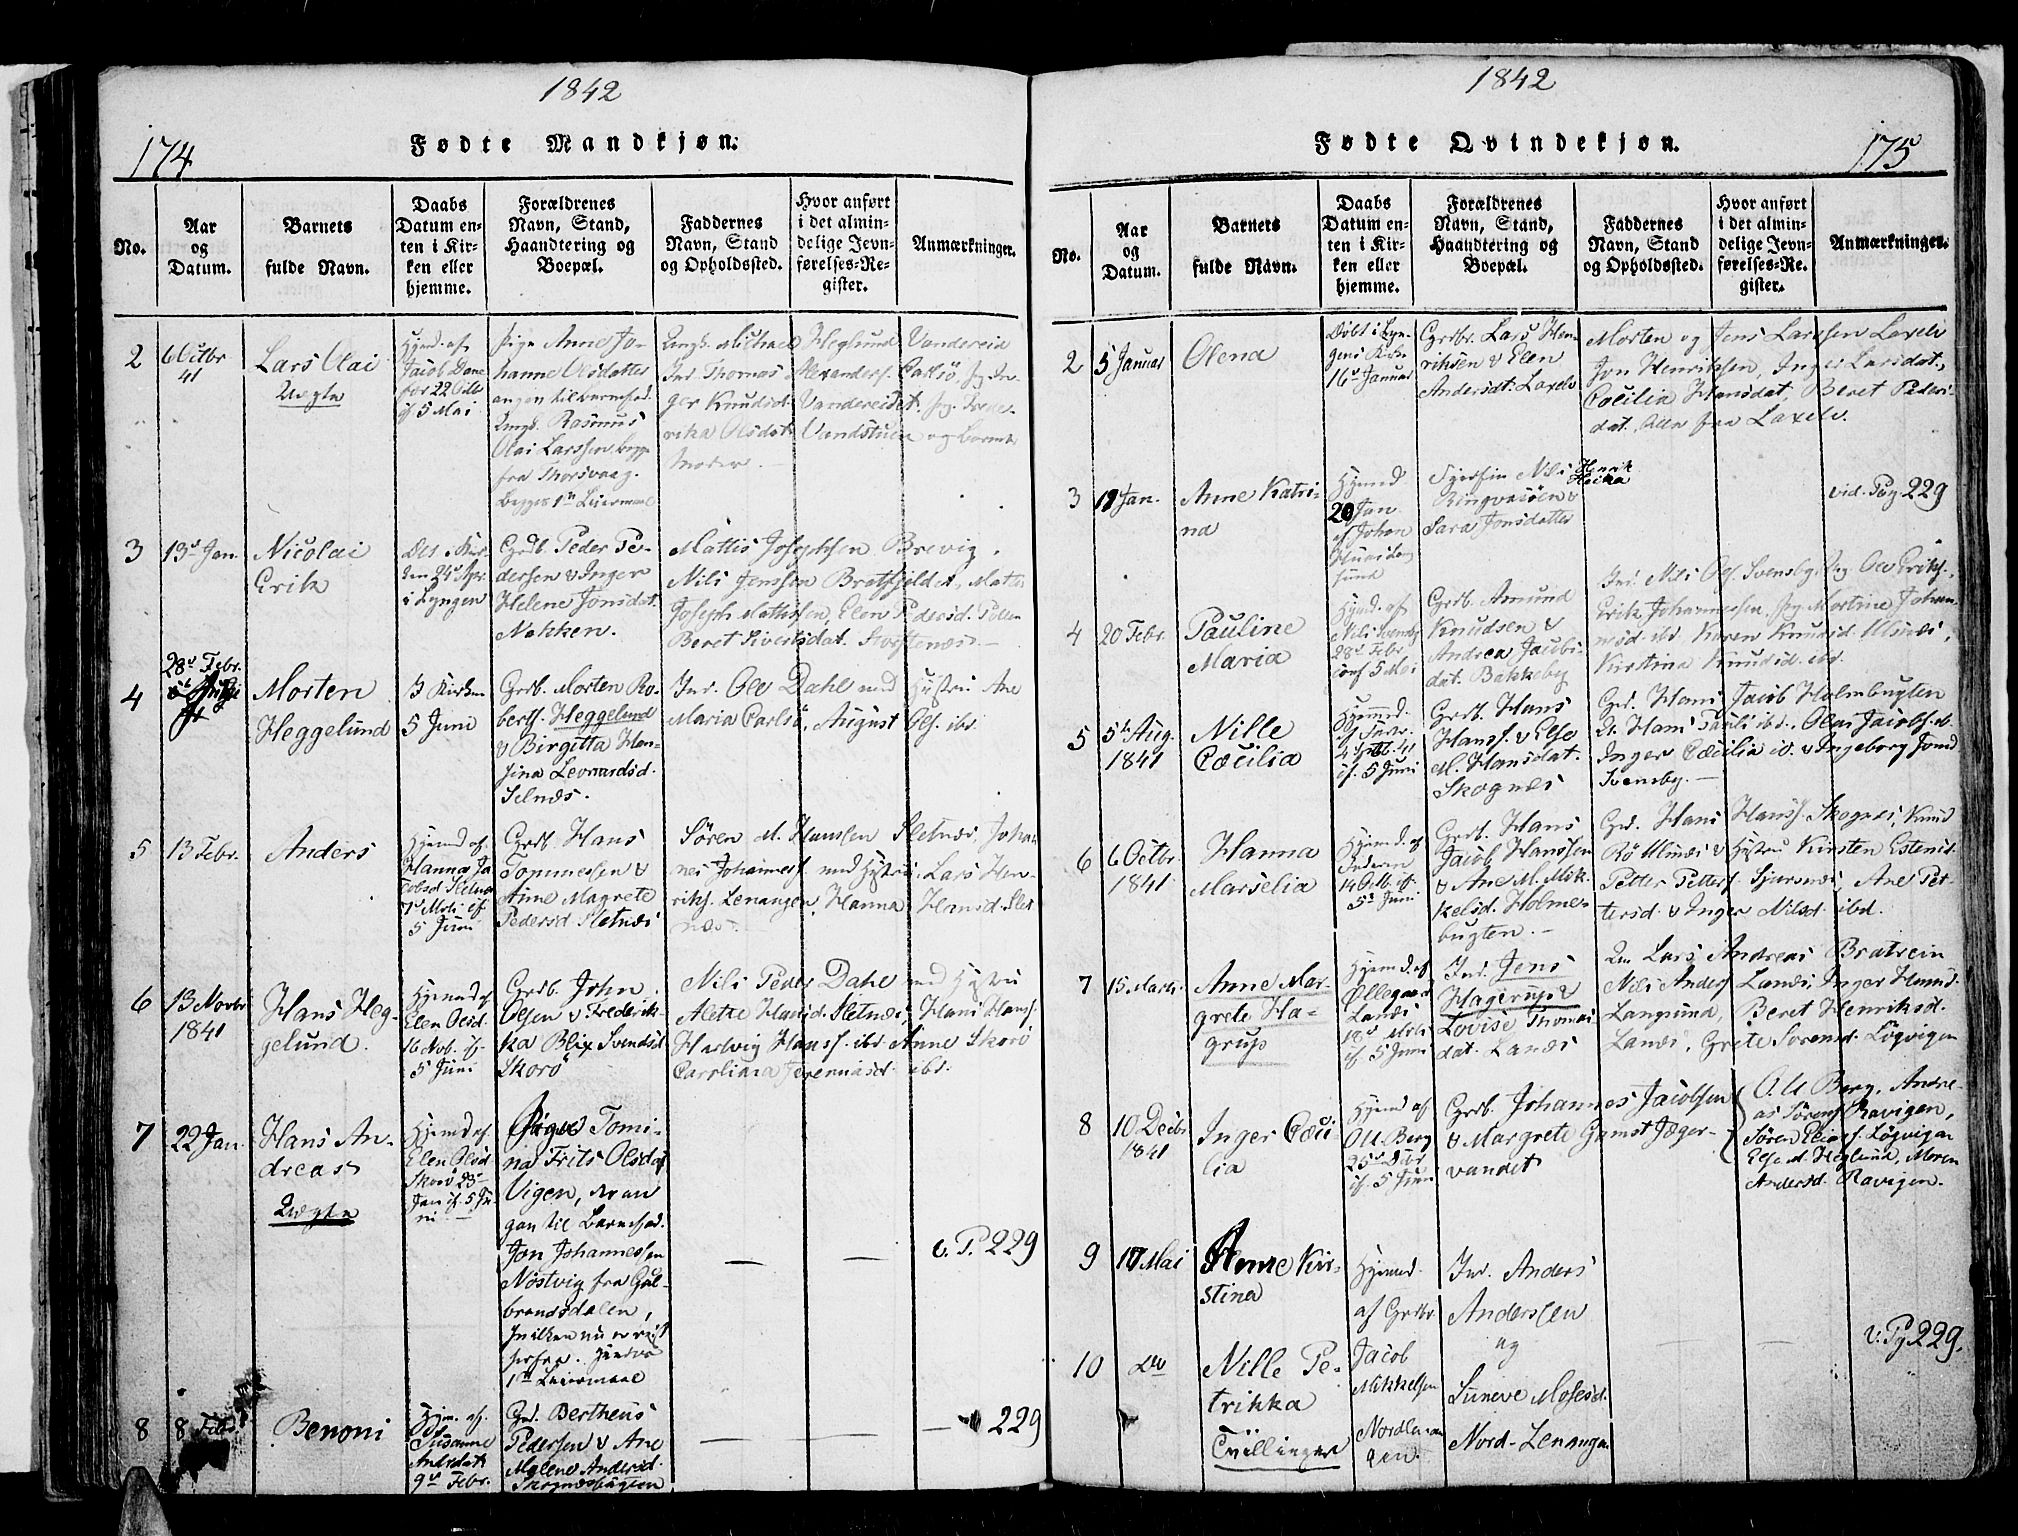 1842
174
Fødte Mandkjøn.
No.
Aar og Datum.
Barnets fulde Navn.
Daabs Datum enten i Kirken eller hjemme.
Forældrenes Navn, Stand, Haandtering og Boepæl.
Faddernes Navn, Stand og Opholdssted.
Hvor anført i det almindelige Jevnførelses-Register.
Anmærkninger.
2
6 Octbr
41
Lars Olai
Uægte
Hjemd. af
Jacob
22
5 Mai
Pige Anne Jo-
hanne Olsdatter
angen til barnefad.
Ungk. Rasmus
Olai Larssen begge
fra Thorsvaag.
begges 1ste Leiermaal
Ungk. Michael Heglund Vandereid
Ind. Thomas Alexanders. Carlsö,
ger Knudsd. Vandereidet. Pig. Frede-
rika Olsdat. Vandstuen og Barnets
Moder.
3
13de Jan.
Nicolai
Erik
Døbt i Kir-
ken 24de Apr.
i Lyngen
Grdb. Peder Pe-
dersen & Inger
Helene Jonsdat.
Nakken.
Mattis Josephsen Brevig.
Nils Jenssen Bratfjeldet,
Joseph Mathissen, Elen Pedersd.
Beret Sivertsdat.
4
28de Febr.
Morten
Heggelund
I Kirken
5 Juni
Grdb. Morten Ro-
berts. Heggelund
& Birgitta Han-
sina Leonardsd.
Selnæs.
Ind. Ole Dahl med Hustru Ane
Maria Carlsö, August Ols. ibd.
5
13 Febr.
Anders
Hjemd af
Hanna Ja-
cobsd. Sletnæs
5 Juni
Grdb. Hans
Tommessen &
Anne Magrete
Pedersd Sletnæs
Sören M. Hansen Sletnæs, Johan-
nes Johanness. med Hustru, Lars Hen-
riks. Lenangen, Hanna Hansd. Slet-
næs.
6
13 Novbr
1841
Hans Heg-
gelund.
Hjemmed af
Elen Olsd.
16 Nob. if.
5 Juni
Grdb. John
Olsen & Frederik-
ka Blix Svendsd
Skorö
Nils Peder Dahl med Hustru
Alette Hansd. Sletnæs, Hans Hans.
Hartvig Hanss. ibd. Anne Skorö
Carolina Jeremiasd. ibd.
7
22 Jan.
Hans An-
dreas
Uægte
Hjemd af
Elen Olsd.
Skorö 23
Jan if. 5 Ju-
ni
Pige Tomi-
na Frits Olsdat
Vigen,
gen til Barnefad.
Jon Johannessen
Nöstvig fra Gul-
brandsdalen,
hvilken nu er reist
herfra. Hendes
1ste Leiermaal
v. P. 229
8
8 Feb.
Benoni
Hjem. af
Susanne
Andersdat
9de Febr.
Grd. Bertheus
Pedersen & Ane
Malene Andersd.
Skognæsbugten
229
1842
175
Fødte Qvindekjøn.
No.
Aar og Datum.
Barnets fulde Navn.
Daabs Datum enten i Kirken eller hjemme.
Forældrenes Navn, Stand, Haandtering og Boepæl.
Faddernes Navn, Stand og Opholdssted.
Hvor anført i det almindelige Jevnførelses-Register.
Anmærkninger.
2
5 Januar
Olena
Døbt i Lyn-
gens Kirke
16de Januar
Grdbr. Lars Hen-
riksen & Elen
Andersdt. Laxelv
Morten og Jens Larssen Laxelv
Jon Henriksen, Inger Larsdat.,
Cæcilia Hansdat, Beret Peders-
dat. Alle fra Laxelv.
3
Jan.
Anne Katri-
na
Hjemd
20 Jan
af Johan
sund
Nils Henrik
Ringvasöen &
Sara Jonsdatter
vid. Pag 229
4
20 Febr.
Pauline
Maria
Hjemd. af
Nils Svensby
28de Febr
5 Mai
Grdb. Amund
Knudsen &
Andrea Jacobs-
dat. Bakkeby
Ind. Nils Ols. Svensby, Pig Ole Eriks.,
Erik Johannessen, Pig Mortine Johan-
nesd ibd. Karen Knudsd. Ulsnæs,
Kirstina Knudsd. ibd.
5
5te Aug.
1841
Nille
Cæcilia
Hjemmed.
if. 5 Juni
Grdb. Hans
Hanss. & Else
M. Hansdat.
Skognæs
Grd. Hans Jacob Holmbugten
Hans Pauls ibd., Olai Jacobs. ib.
Inger Cæcilia ib. & Ingeborg Jonsd
Svensby.
6
6 Octbr.
1841
Hanna
Marselia
Hjemd. af
5te Juni
Grdb. Hans
Jacob Hanssen
& Ane M. Mik-
kelsd. Holme-
bugten.
Grd. Hans Hanss. Skognæs, Knud
Rö Ulsnæs & Hustru Kirsten Estensd.
Petter Petters. Sjursnæs, Ane Pet-
tersd. & Inger Nilsd. ibd.
7
15 Marts.
Anne Mar-
grete Ha-
grup
Hjemd. af
Øllegaard
Lanæs
18de
if. 5 Juni
Ind. Jens
Hagerup &
Lovise Thomas-
dat. Lanæs
Lars Andreas Bratrein
Nils Anders. Lanæs, Inger Hansd.
Langsund, Beret Henriksd.
Lanæs, Grete Sørensd. Lögvigen
8
10 Decbr
1841
Inger Cæci-
lia
Hjemd af
O. U. Berg
25de Dcbr
if. 5 Juni
Grdb. Johannes Jacobsen
& Margrete Gamst Jæger-
vandet
O. U. Berg, Andre-
as Sörens. Ravigen,
Sören Elias. Lögvigen
Else M. Heglund, Maren
Andersd. Ravigen.
9
17 Mai
Anne Kir-
stina
Hjemmed.
af Grdbr
Jacob
Mikkelsen
Nordlenan-
gen.
Ind. Anders
Anderssen
og
Suneve Mosesd.
Nord-Lenangen
v. Pg 229.
10
do
Nille Pe-
trikka
Tvillinger